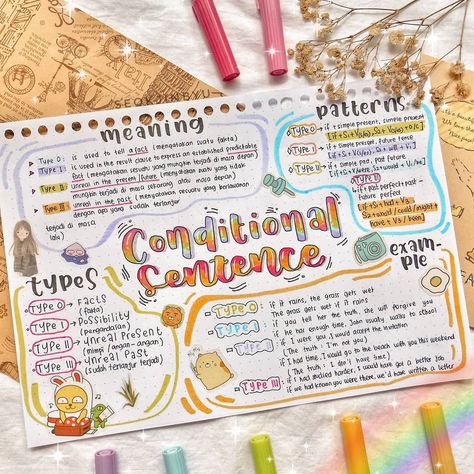 meaning
Type 0 : is used to tell a fact (mengatakan suatu fakta)
Type I : is used in the result cause to express an established predictable fact (mengatakan sesuatu yang mungkin terjadi di masa depan)
Type II : unreal in the present / future (mengatakan suatu yang tidak mungkin terjadi di masa sekarang atau masa depan)
Type III : unreal in the past (mengatakan sesuatu yang berlawanan
dengan apa yang sudah terlanjur
terjadi di masa
lalu)
patterns
Type 0 → if + simple present, simple present
Type I → if + simple present, simple future
Type II → if + simple past, past future
Type III
↳ if + past perfect + past
future perfect
If + S1 + had + V3,
S2 + would / could / might +
have + V3 / been
Conditional
Sentence
types
Type 0 → Facts
(fakta)
Type I → Possibility
(pengandaian)
Type II → Unreal Present
(mimpi / angan-angan)
Type III → Unreal Past
(sudah terlanjur terjadi)
exam-
ple
- Type 0 : if it rains, the grass gets wet
The grass gets wet if it rains
- Type I : if you tell her the truth, she will forgive you
if he has enough time, John walks to school
- Type II : if I were you, I would accept the invitation
(The truth : I'm not you)
if I had time, I would go to the beach with you this weekend
(The truth : I don't have time)
- Type III : if I had studied harder, I would have got a better job
if we had known you were there, we'd have written a letter